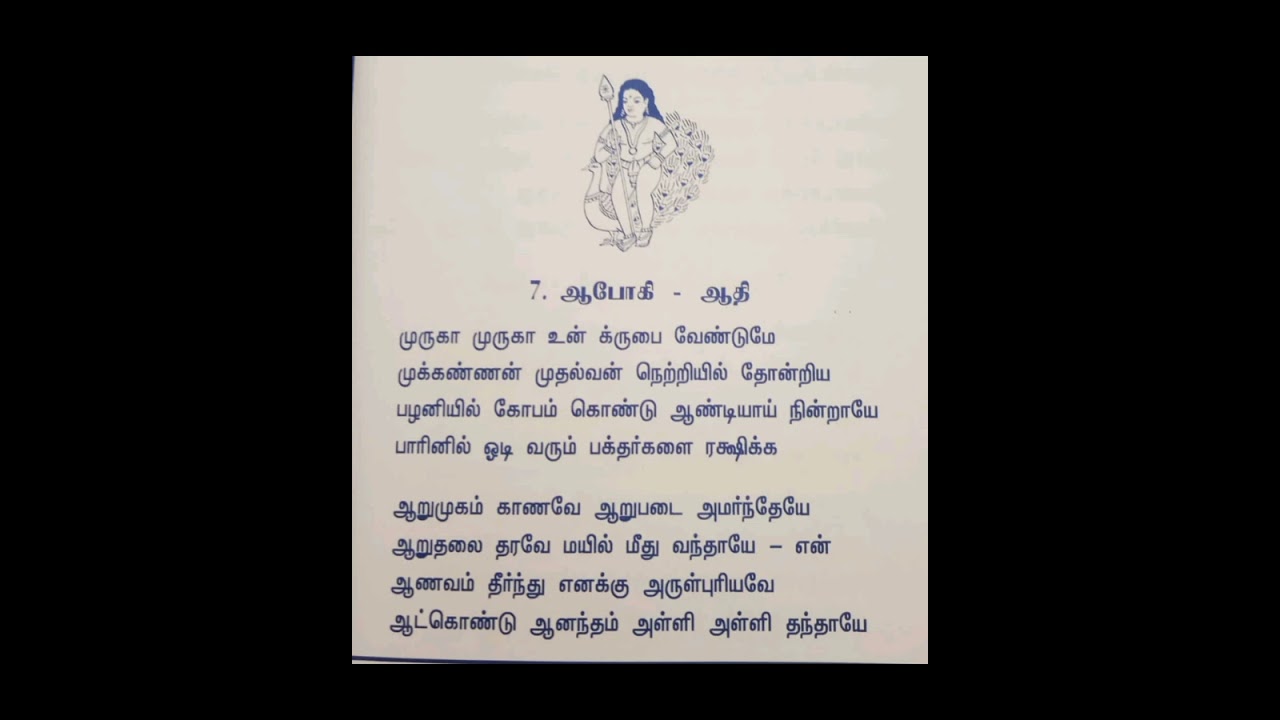 7. ஆபோகி - ஆதி
முருகா முருகா உன் க்ருபை வேண்டுமே
முக்கண்ணன் முதல்வன் நெற்றியில் தோன்றிய
பழனியில் கோபம் கொண்டு ஆண்டியாய் நின்றாயே
பாரினில் ஓடி வரும் பக்தர்களை ரக்ஷிக்க
ஆறுமுகம் காணவே ஆறுபடை அமர்ந்தேயே
ஆறுதலை தரவே மயில் மீது வந்தாயே – என்
ஆணவம் தீர்ந்து எனக்கு அருள்புரியவே
ஆட்கொண்டு ஆனந்தம் அள்ளி அள்ளி தந்தாயே